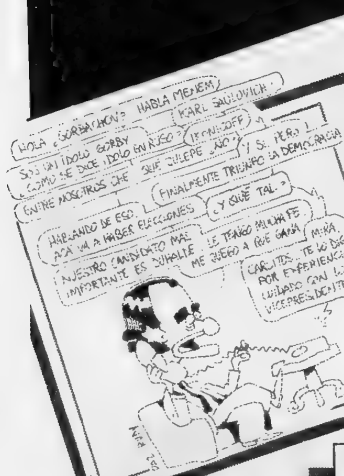 ¿HOLA, GORBACHOV? HABLA MENEM
KARL SAULOVICH
SOS UN IDOLO GORBY
¿COMO SE DICE IDOLO EN RUSO?
ENTRE NOSOTROS CHE QUE JULEPE ¿NO?
Y SI, PERO
FINALMENTE TRIUNFO LA DEMOCRACIA
HABLANDO DE ESO,
ACA VA A HABER ELECCIONES
¿Y QUÉ TAL?
NUESTRO CANDIDATO MAS
IMPORTANTE ES DUHALDE. LE TENGO MUCHA FE
ME JUEGO A QUE GANA
MIRA
CARLITOS, TE LO DIGO
POR EXPERIENCIA
CUIDADO CON LOS
VICEPRESIDENTES